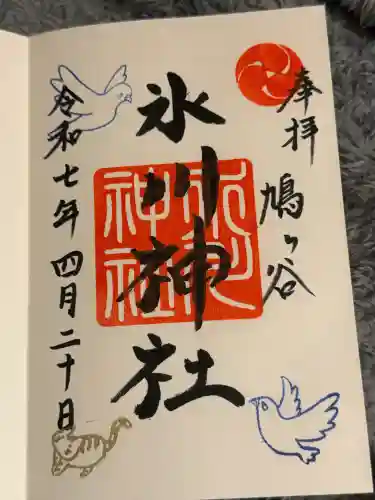 奉拝
鳩ヶ谷
氷川神社
氷川
神社
令和七年四月二十日